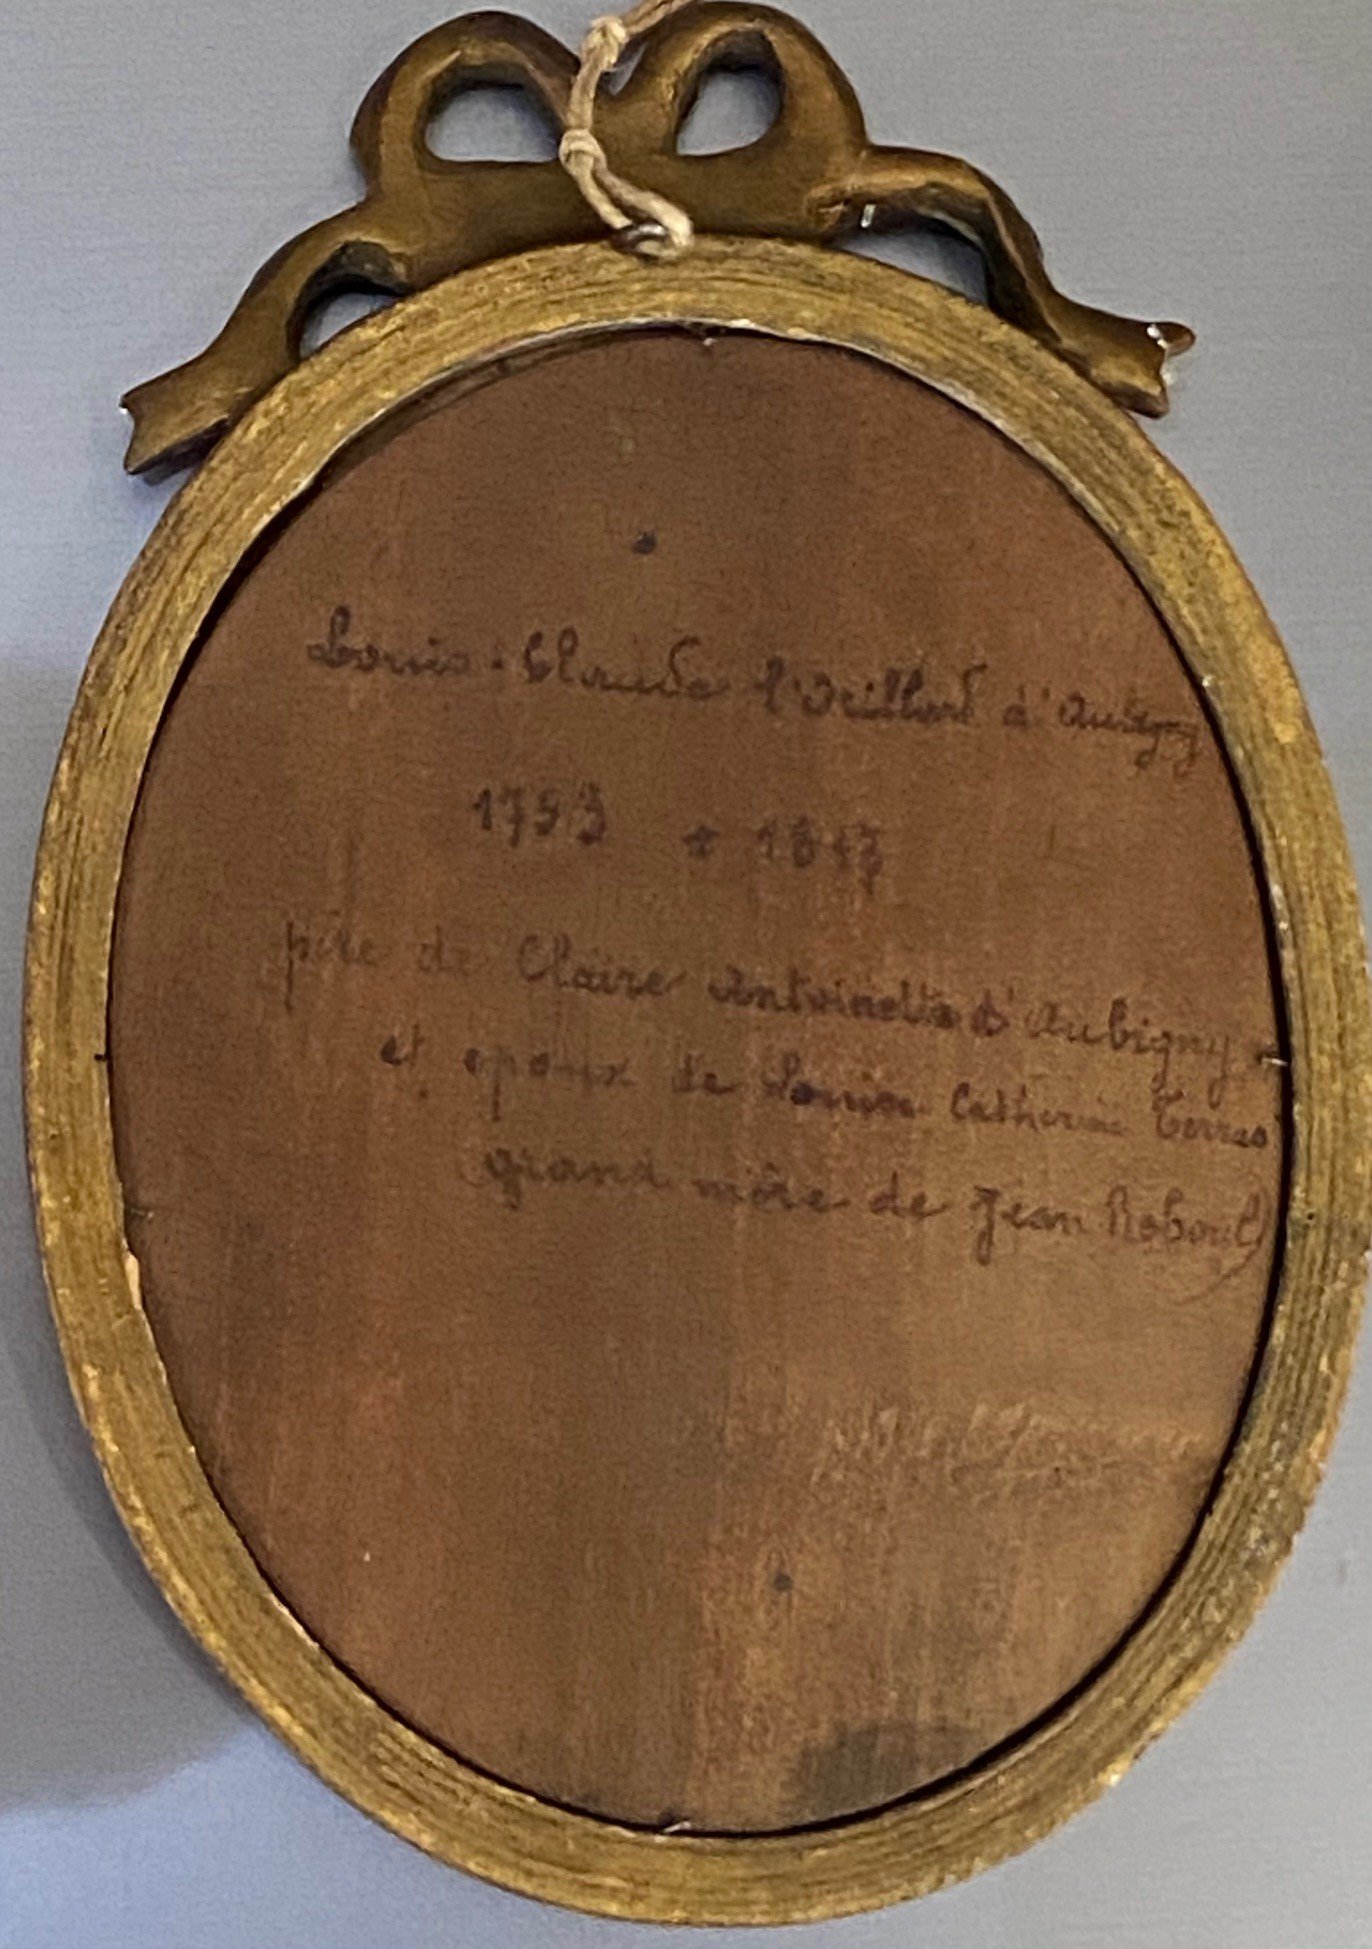 Louis-Claude l'Oeillard d'Aubigny
1753 + 1847
père de Claire Antoinette d'Aubigny
et epoux de Louise Catherine
grand mère de Jean Reboul)